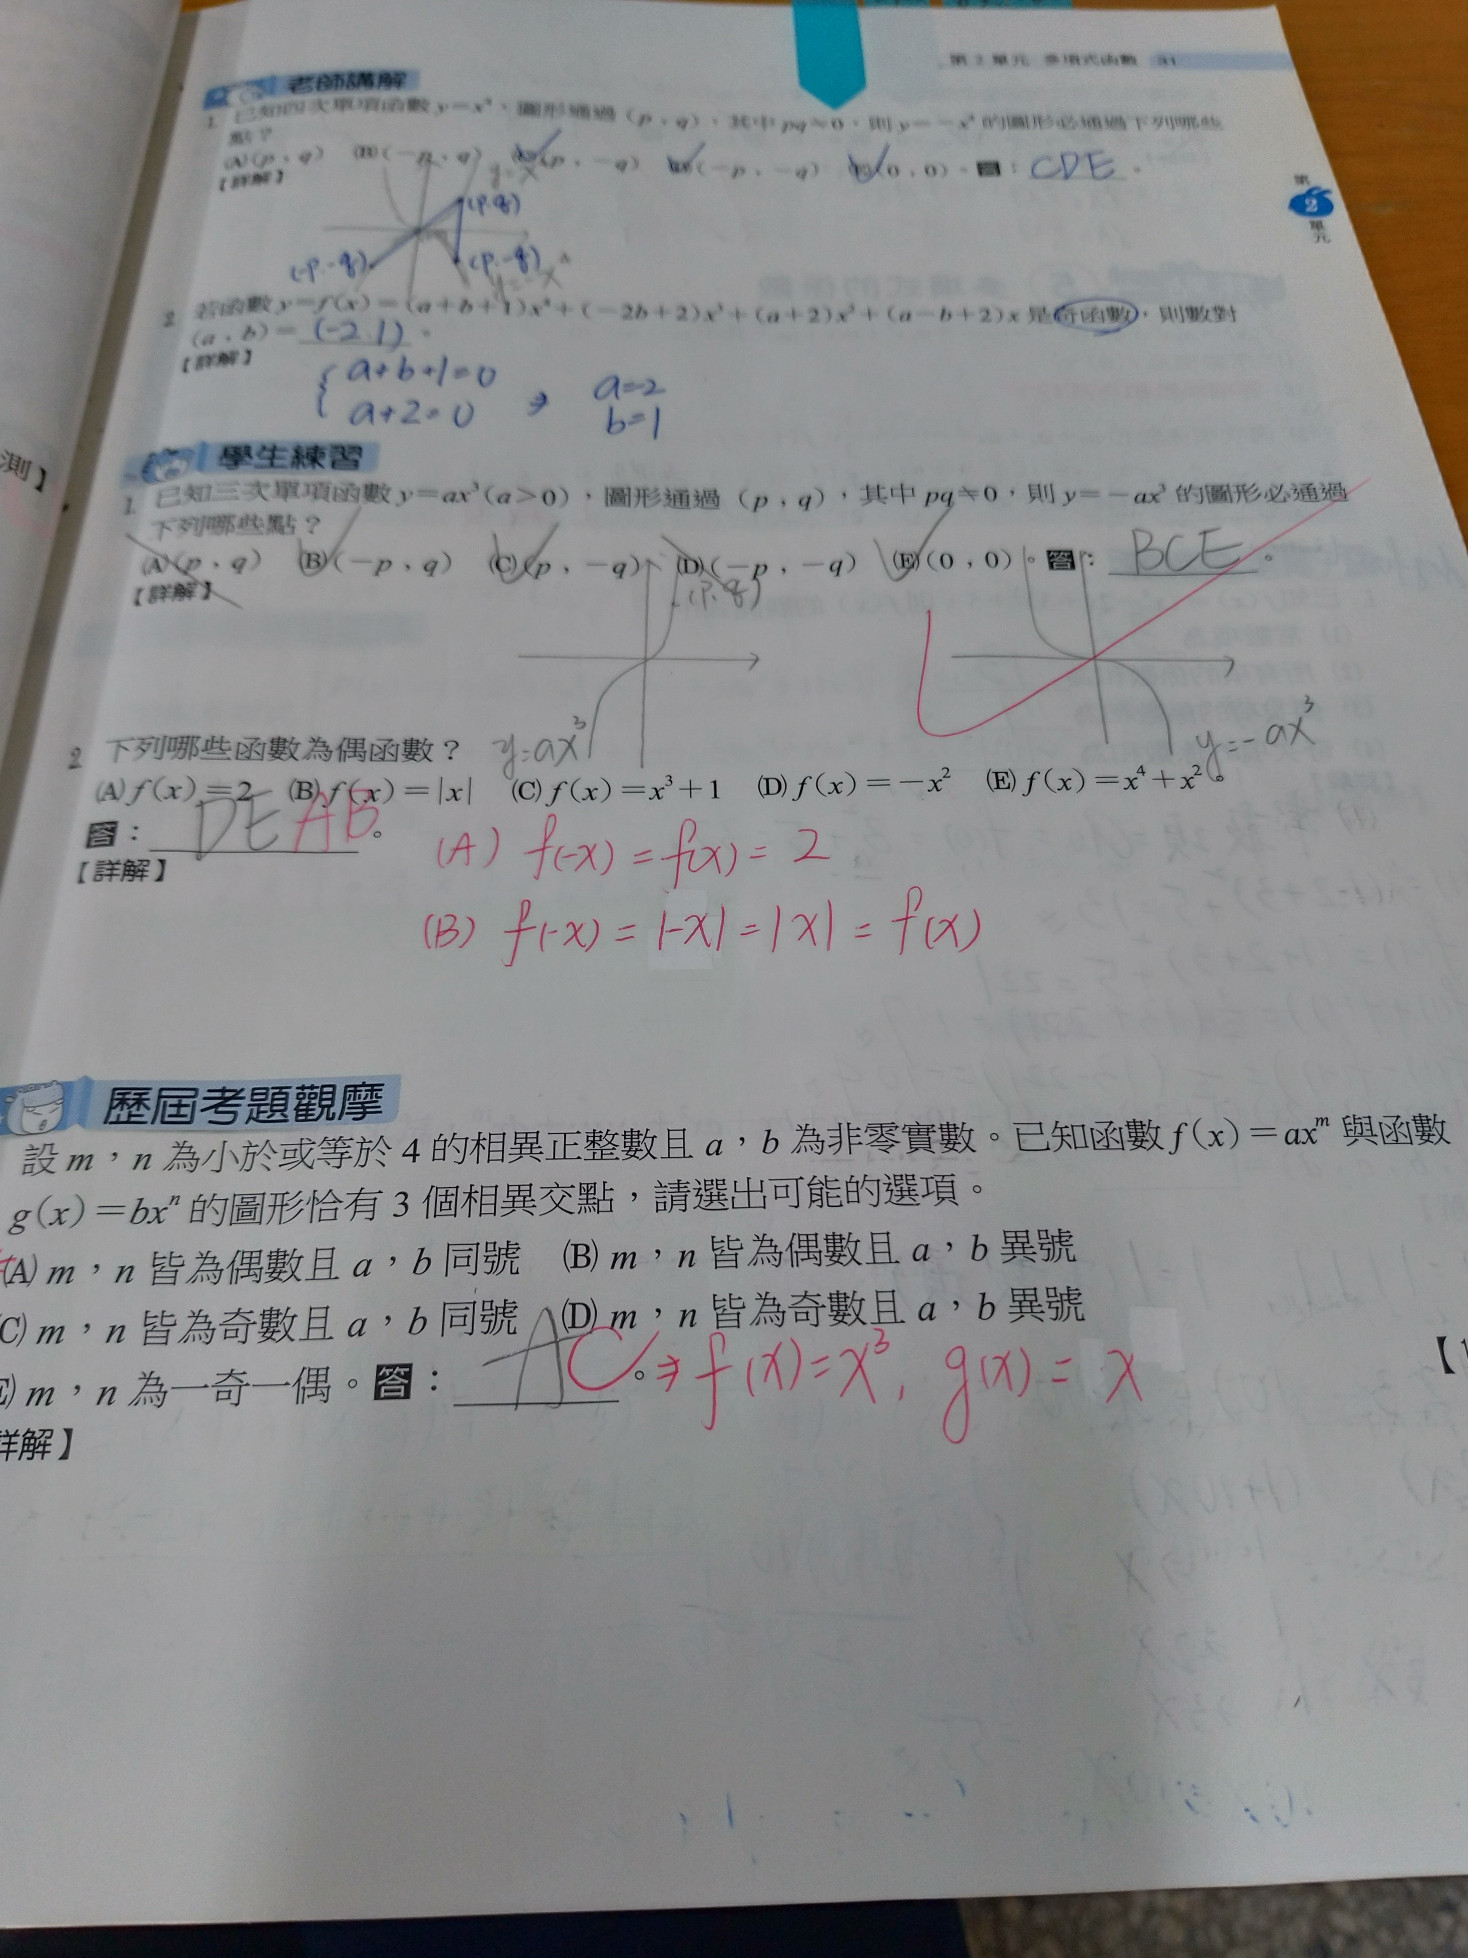 第 2 單元 多項式函數 31
老師講解
1. 已知四次單項函數 y=x⁴，圖形通過（p，q），其中 pq≒0，則 y=-x⁴ 的圖形必通過下列哪些
點？
(A)(p，q) (B)(-p，q) (C)(p，-q) (D)(-p，-q) (E)(0，0)。答：CDE。
【詳解】
(p.q)
(-p.-q) (p.-q)
第
2
單
元
2. 若函數 y=f(x)=(a+b+1)x⁴+(-2b+2)x³+(a+2)x²+(a-b+2)x 是奇函數，則數對
(a，b)=(-2.1)。
【詳解】
a+b+1=0
a+2=0 ⇒ a=-2
b=1
測】
學生練習
1. 已知三次單項函數 y=ax³(a>0)，圖形通過（p，q），其中 pq≒0，則 y=-ax³ 的圖形必通過
下列哪些點？
(A)(p，q) (B)(-p，q) (C)(p，-q) (D)(-p，-q) (E)(0，0)。答：BCE。
【詳解】
(p.q)
y=ax³ y=-ax³
2. 下列哪些函數為偶函數？
(A) f(x)=2 (B) f(x)=|x| (C) f(x)=x³+1 (D) f(x)=-x² (E) f(x)=x⁴+x²。
答：DEAB。
【詳解】
(A) f(-x)=f(x)=2
(B) f(-x)=|-x|=|x|=f(x)
歷屆考題觀摩
設 m，n 為小於或等於 4 的相異正整數且 a，b 為非零實數。已知函數 f(x)=axᵐ 與函數
g(x)=bxⁿ 的圖形恰有 3 個相異交點，請選出可能的選項。
(A) m，n 皆為偶數且 a，b 同號 (B) m，n 皆為偶數且 a，b 異號
(C) m，n 皆為奇數且 a，b 同號 (D) m，n 皆為奇數且 a，b 異號
(E) m，n 為一奇一偶。答：AC。⇒ f(x)=x³, g(x)=x
詳解】